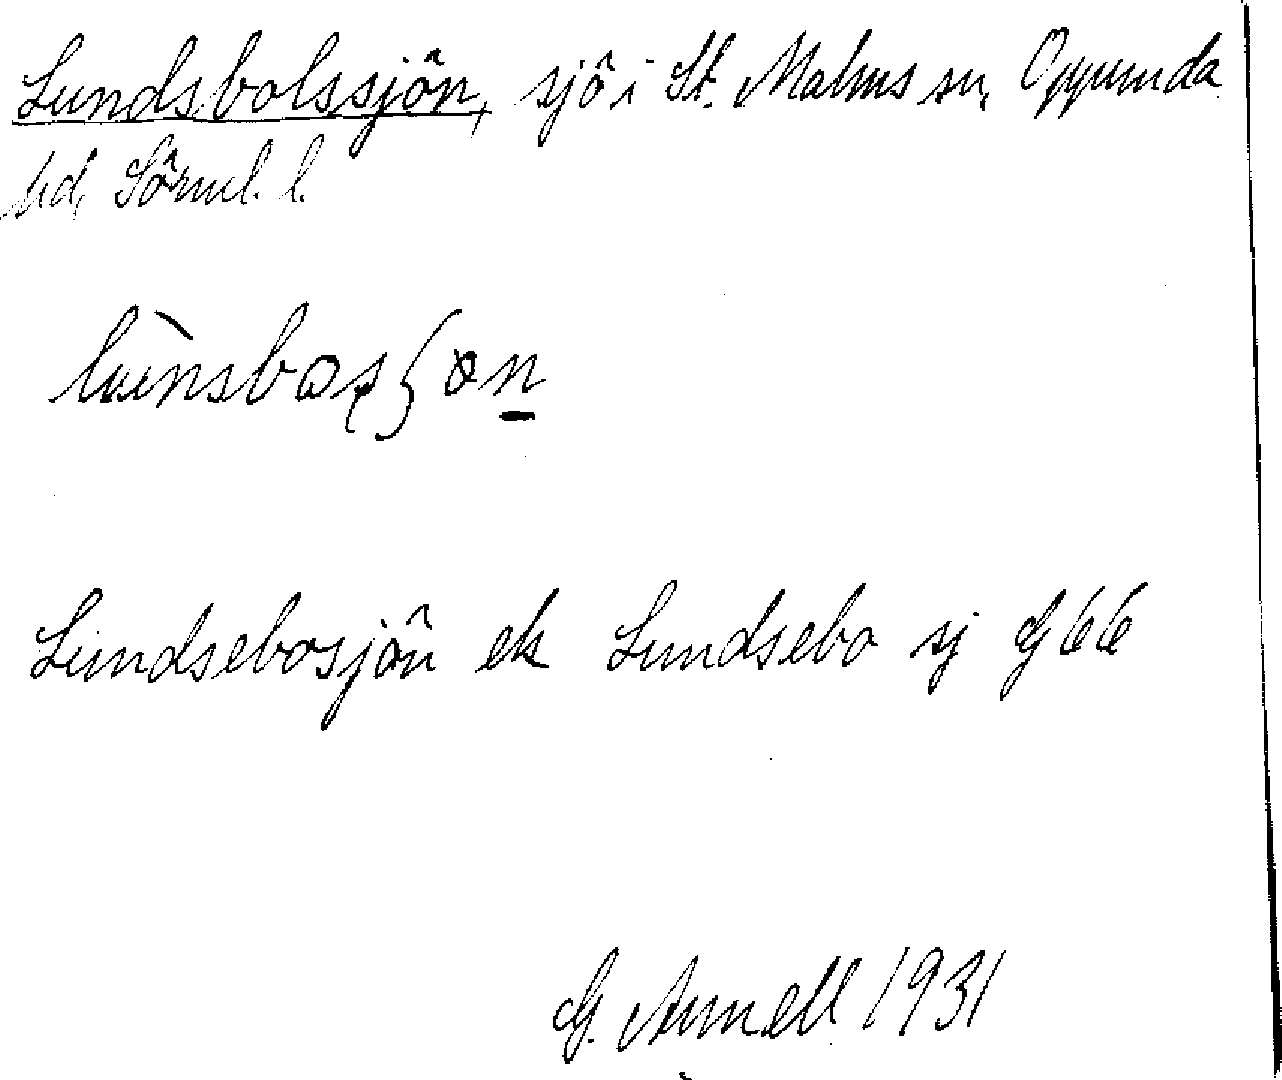 Lundsbolssjön, sjö i St. Malms sn, Oppunda
hd, Sörml. l.
Lundsebosjön ek Lundsebo sj G 66
G. Arnell 1931